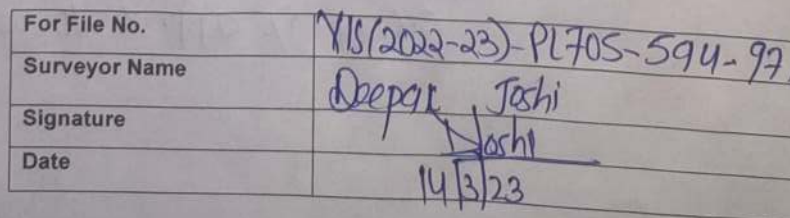 For File No. VIS(2022-23)-PL705-594-97
Surveyor Name Deepak Joshi
Signature Joshi
Date 14/3/23